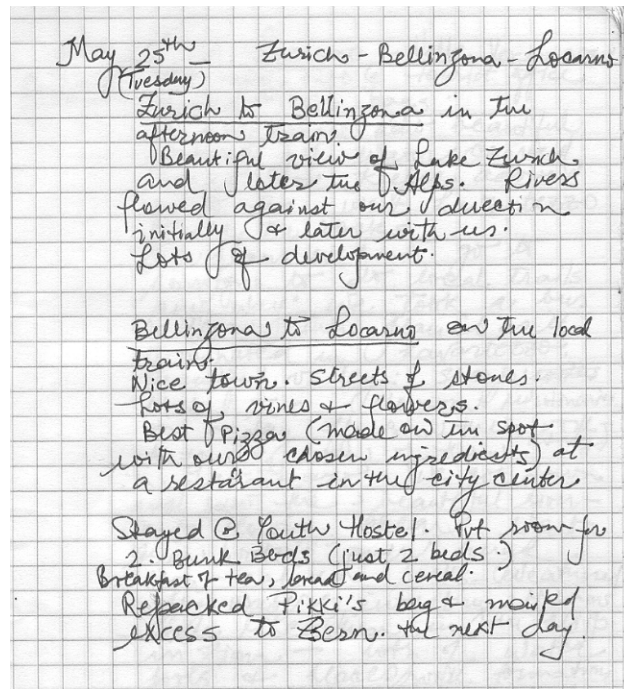 May 25th - Zurich - Bellinzona - Locarno
(Tuesday)
Zurich to Bellinzona in the
afternoon train.
Beautiful view of Lake Zurich
and later the Alps. Rivers
flowed against our direction
initially & later with us.
Lots of development.
Bellinzona to Locarno on the local
train.
Nice town. Streets of stones.
Lots of vines & flowers.
Best Pizza (made on the spot
with our chosen ingredients) at
a restarant in the city center
Stayed @ Youth Hostel. Pvt room for
2. Bunk Beds (just 2 beds.)
Breakfast of tea, bread and cereal.
Repacked Pikki's bag & mailed
excess to Bern. the next day.